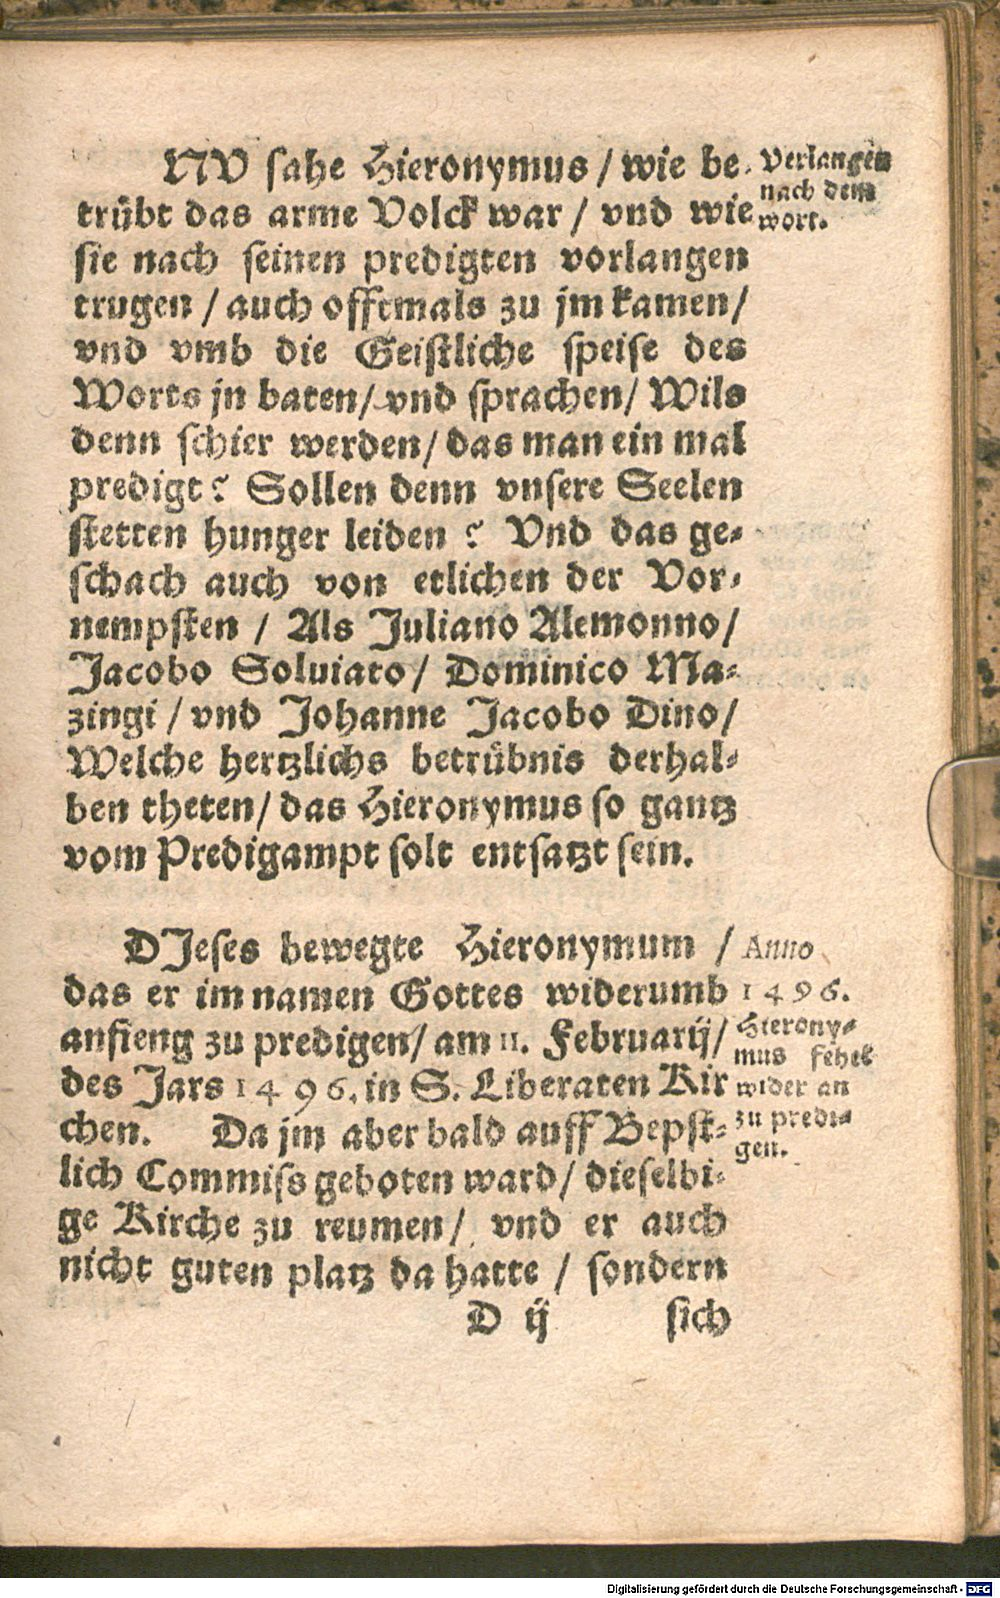 NV sahe Hieronymus / wie be-
trübt das arme Volck war / vnd wie
sie nach seinen predigten vorlangen
trugen / auch offtmals zu jm kamen /
vnd vmb die Geistliche speise des
Worts jn baten / vnd sprachen / Wils
denn schier werden / das man ein mal
predigt? Sollen denn vnsere Seelen
stetten hunger leiden? Vnd das ge-
schach auch von etlichen der Vor-
nempsten / Als Juliano Alemonno /
Jacobo Soluiato / Dominico Ma-
zingi / vnd Johanne Jacobo Dino /
Welche hertzlichs betrübnis derhal-
ben theten / das Hieronymus so gantz
vom Predigampt solt entsatzt sein.
Verlangen
nach dem
wort.
DJeses bewegte Hieronymum /
das er im namen Gottes widerumb
anfieng zu predigen / am 11. Februarij /
des Jars 1496. in S. Liberaten Kir
chen. Da jm aber bald auff Bepst-
lich Commiss geboten ward / dieselbi-
ge Kirche zu reumen / vnd er auch
nicht guten platz da hatte / sondern
Anno
1496.
Hierony-
mus fehet
wider an
zu predi-
gen.
D ij sich
Digitalisierung gefördert durch die Deutsche Forschungsgemeinschaft - DFG